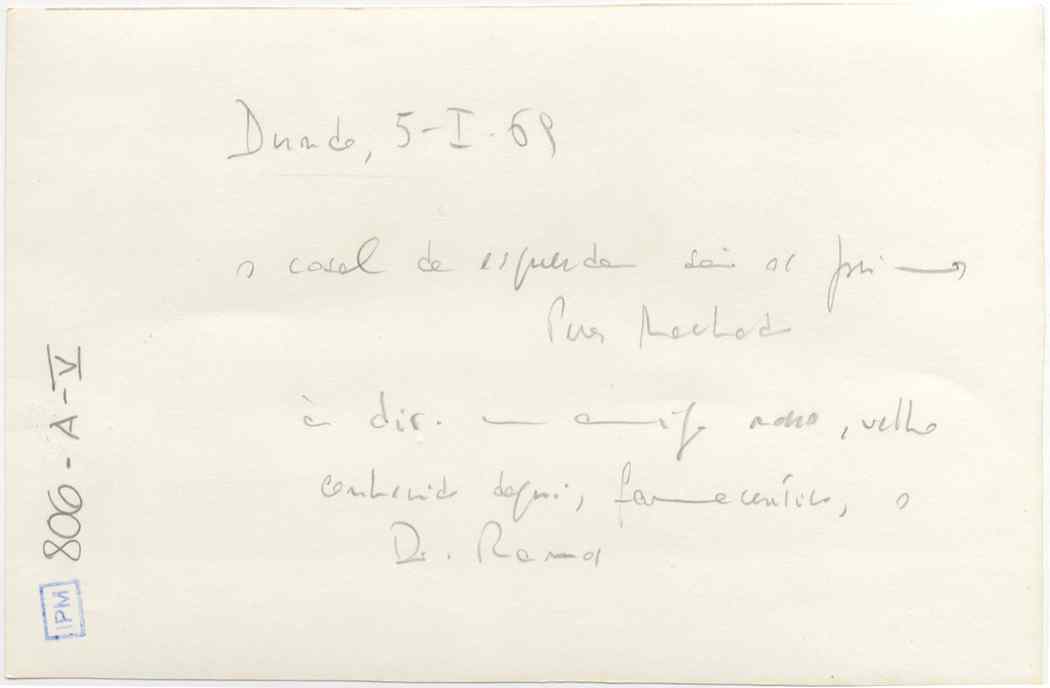 Dundo, 5-I-69
o casal da esquerda são os primos
Pires Machado
à dir. um amigo nosso, velho
conhecido daqui, farmacêutico, o
Dr. Ramos
806-A-V
IPM